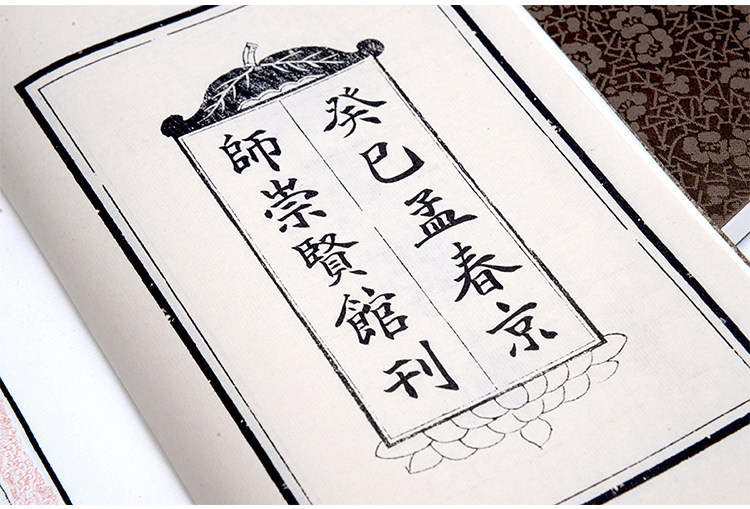 癸巳孟春京
師崇賢館刊